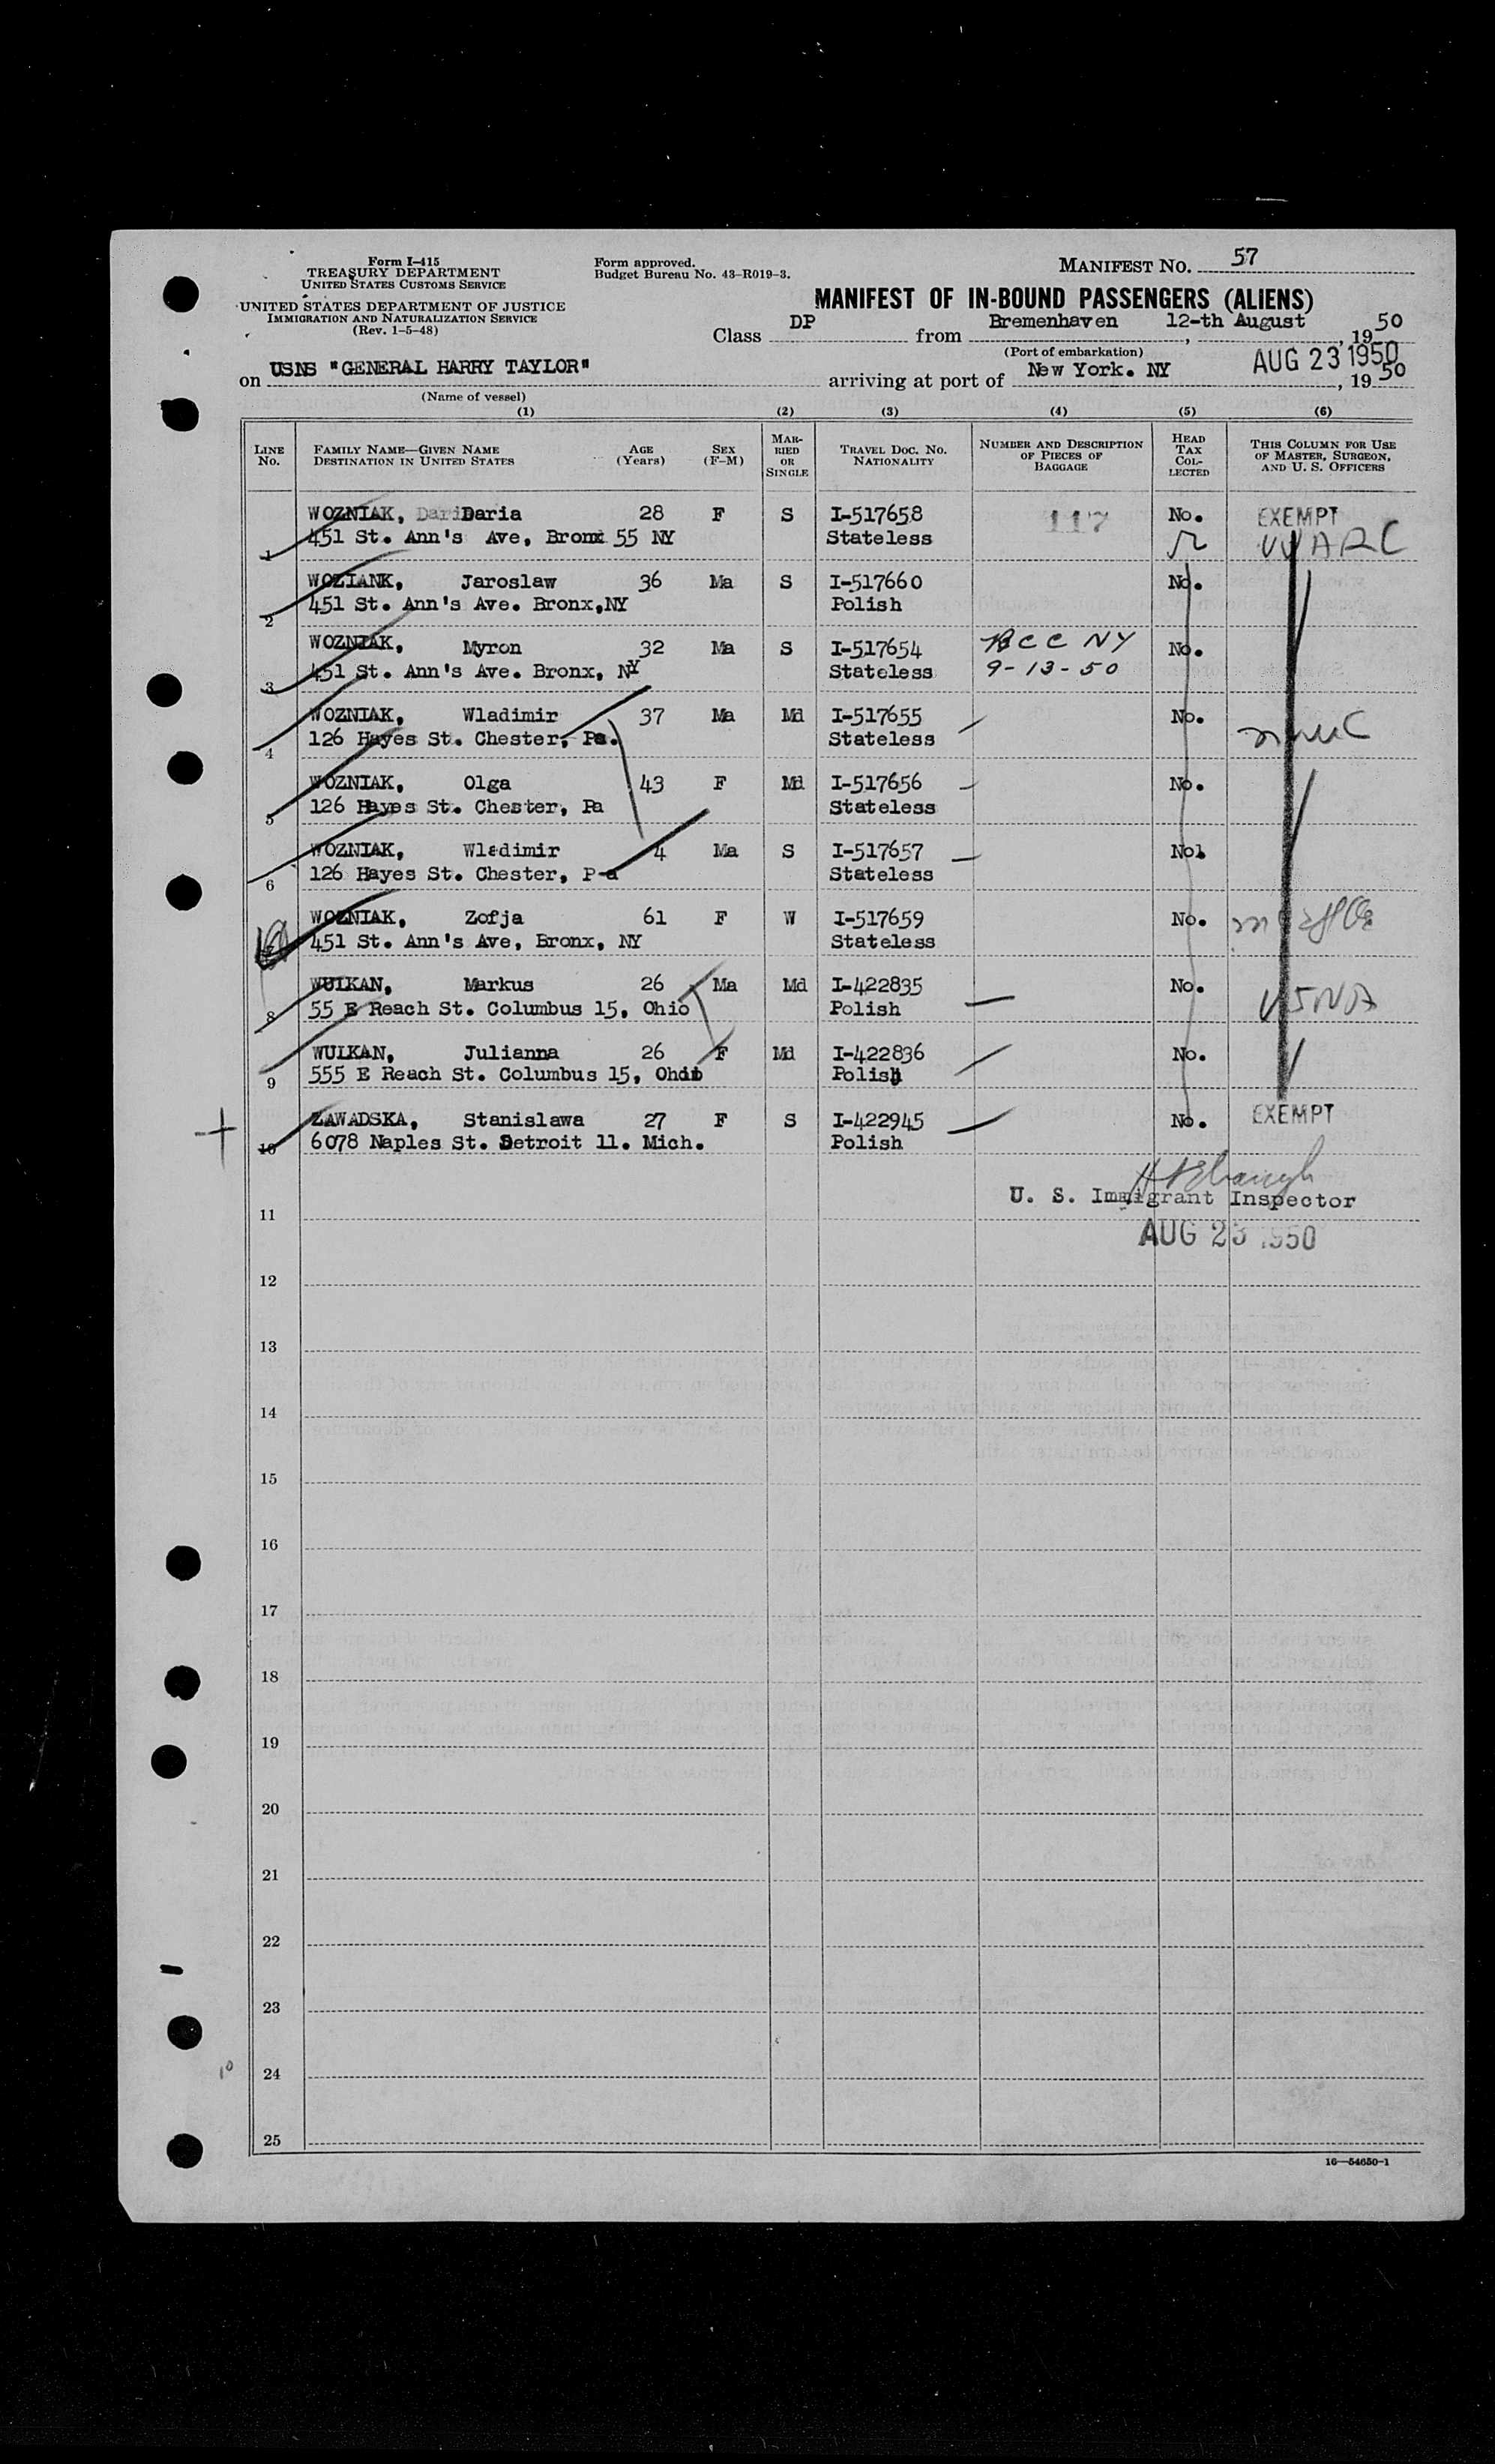 Form I-415
TREASURY DEPARTMENT
UNITED STATES CUSTOMS SERVICE
UNITED STATES DEPARTMENT OF JUSTICE
IMMIGRATION AND NATURALIZATION SERVICE
(Rev. 1-5-48)
Form approved.
Budget Bureau No. 43-R019-3.
MANIFEST NO. 57
MANIFEST OF IN-BOUND PASSENGERS (ALIENS)
Class DP from Bremenhaven, 12-th August, 1950
(Port of embarkation)
AUG 23 1950
on USNS "GENERAL HARRY TAYLOR" arriving at port of New York. NY, 1950
(Name of vessel)
(1) (2) (3) (4) (5) (6)
LINE NO. FAMILY NAME—GIVEN NAME DESTINATION IN UNITED STATES AGE (Years) SEX (F-M) MARRIED OR SINGLE TRAVEL DOC. NO. NATIONALITY NUMBER AND DESCRIPTION OF PIECES OF BAGGAGE HEAD TAX COLLECTED THIS COLUMN FOR USE OF MASTER, SURGEON, AND U. S. OFFICERS
WOZNIAK, Daria 28 F S I-517658 117 No. EXEMPT
1 451 St. Ann's Ave, Bronx 55 NY Stateless
WOZIANK, Jaroslaw 36 Ma S I-517660 No.
2 451 St. Ann's Ave. Bronx,NY Polish
WOZNIAK, Myron 32 Ma S I-517654 RCC NY No.
3 451 St. Ann's Ave. Bronx, NY Stateless 9-13-50
WOZNIAK, Wladimir 37 Ma Md I-517655 No.
4 126 Hayes St. Chester, Pa. Stateless
WOZNIAK, Olga 43 F Md I-517656 No.
5 126 Hayes St. Chester, Pa Stateless
WOZNIAK, Wladimir 4 Ma S I-517657 No.
6 126 Hayes St. Chester, Pa Stateless
WOZNIAK, Zofja 61 F W I-517659 No.
451 St. Ann's Ave, Bronx, NY Stateless
WULKAN, Markus 26 Ma Md I-422835 No. USNA
8 55 E Reach St. Columbus 15, Ohio Polish
WULKAN, Julianna 26 F Md I-422836 No.
9 555 E Reach St. Columbus 15, Ohio Polish
ZAWADSKA, Stanislawa 27 F S I-422945 No. EXEMPT
10 6078 Naples St. Detroit 11. Mich. Polish
U. S. Immigrant Inspector
11
AUG 23 1950
12
13
14
15
16
17
18
19
20
21
22
23
24
25
16—54650-1